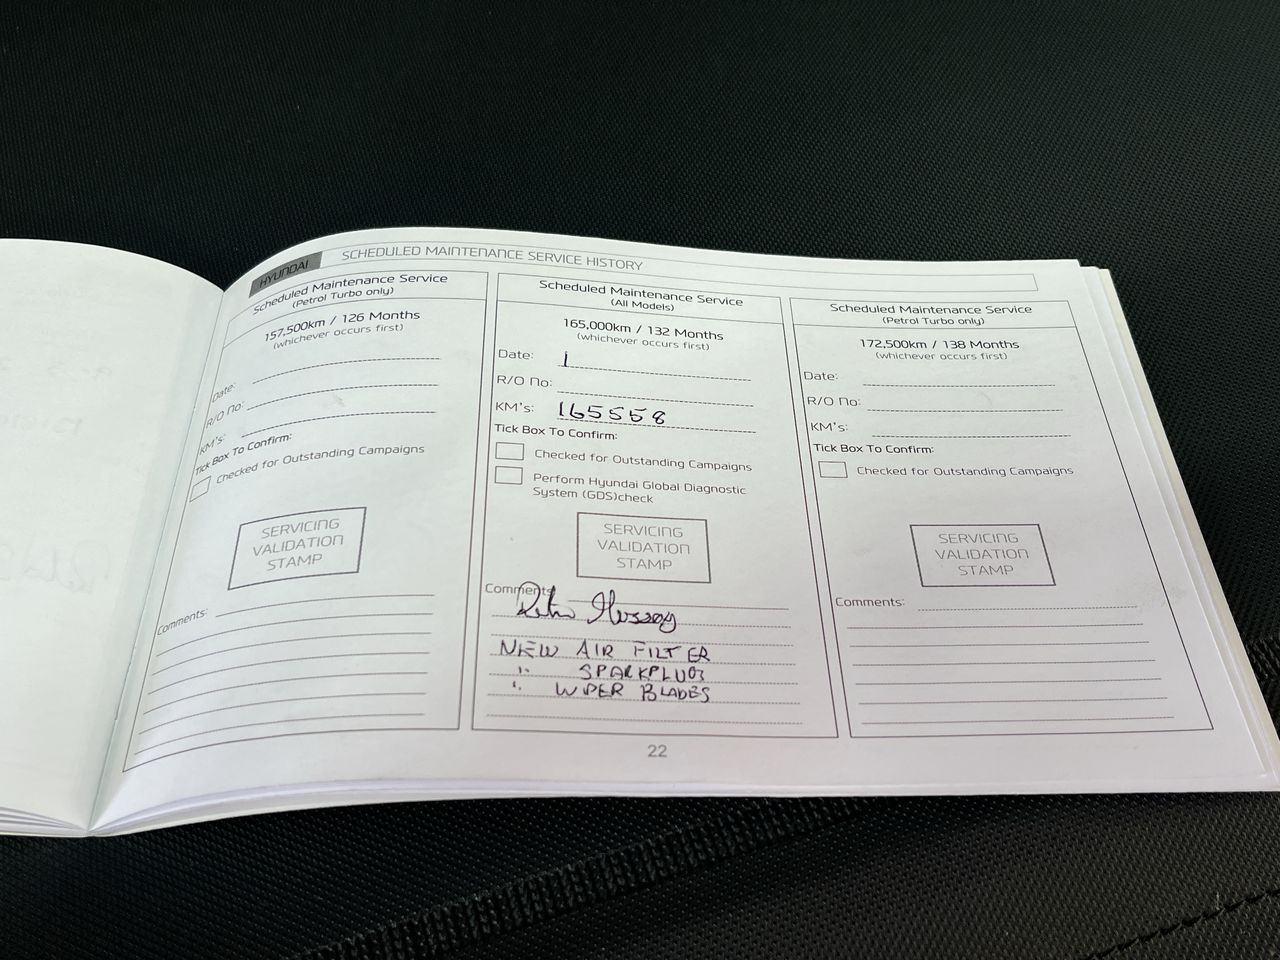 HYUNDAI
SCHEDULED MAINTENANCE SERVICE HISTORY
Scheduled Maintenance Service
(Petrol Turbo only)
157,500km / 126 Months
(whichever occurs first)
Date:
R/O No:
KM's:
Tick Box To Confirm:
Checked for Outstanding Campaigns
SERVICING
VALIDATION
STAMP
Comments:
Scheduled Maintenance Service
(All Models)
165,000km / 132 Months
(whichever occurs first)
Date:
R/O No:
KM's: 165558
Tick Box To Confirm:
Checked for Outstanding Campaigns
Perform Hyundai Global Diagnostic
System (GDS)check
SERVICING
VALIDATION
STAMP
Comments
NEW AIR FILTER
SPARKPLUGS
WIPER BLADES
Scheduled Maintenance Service
(Petrol Turbo only)
172,500km / 138 Months
(whichever occurs first)
Date:
R/O No:
KM's:
Tick Box To Confirm:
Checked for Outstanding Campaigns
SERVICING
VALIDATION
STAMP
Comments:
22